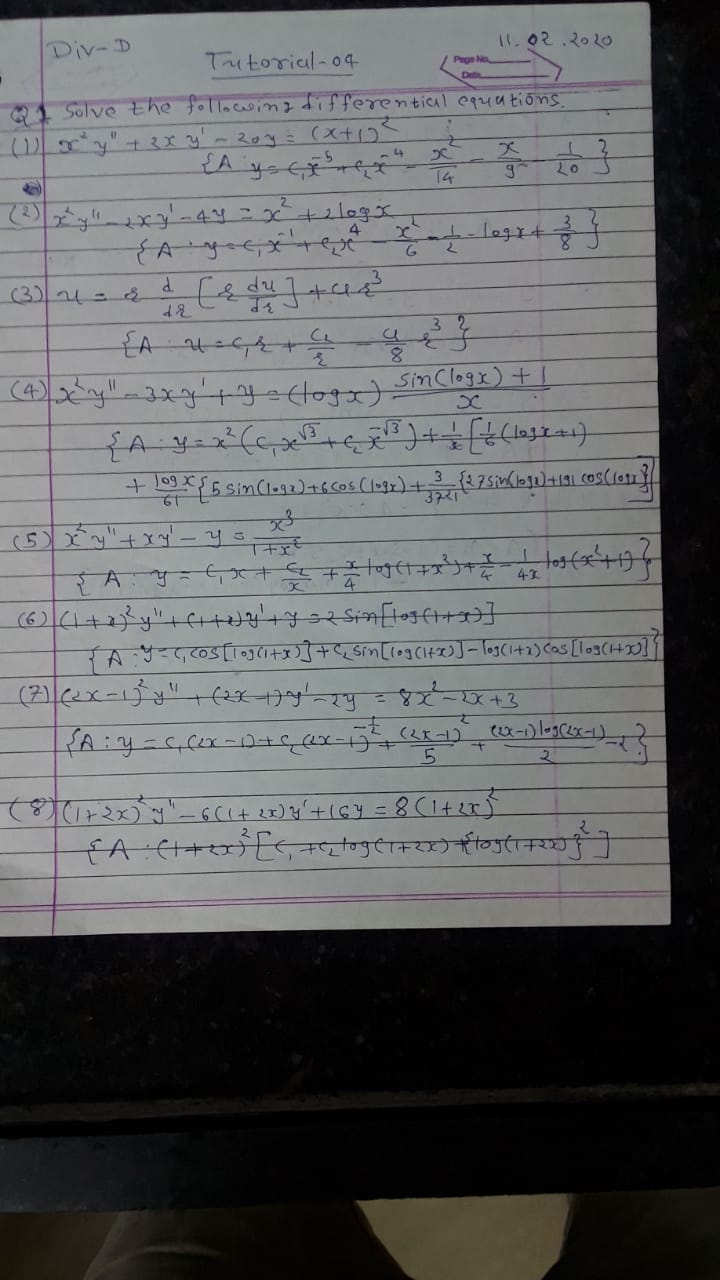 Div-D
11.02.2020
Tutorial-04
Page No.
Date
Q1 Solve the following differential equations.
(1) x²y" + 2xy' - 20y = (x+1)²
{A y = c₁x⁻⁵ + c₂x⁻⁴ - x²/14 - x/9 - 1/20}
(2) x²y" - 2xy' - 4y = x² + 2logx
{A : y = c₁x⁻¹ + c₂x⁴ - x²/6 - 1/2 - logx + 3/8}
(3) u = r d/dr [r du/dr] + ar³
{A : u = c₁r + c₂/r - a/8 r³}
(4) x²y" - 3xy' + y = (logx) sin(logx) + 1 / x
{A : y = x²(c₁x^√3 + c₂x^-√3) + 1/x [1/6 (logx+1)
+ logx/61 {5 sin(logx) + 6cos(logx) + 3/3721 {27sin(logx) + 191 cos(logx)}]}
(5) x²y" + xy' - y = x³/1+x²
{A : y = c₁x + c₂/x + x/4 log(1+x²) + x/4 - 1/4x log(x²+1)}
(6) (1+x)²y" + (1+x)y' + y = 2 Sin[log(1+x)]
{A : y = c₁cos[log(1+x)] + c₂sin[log(1+x)] - log(1+x)cos[log(1+x)]}
(7) (2x-1)²y" + (2x-1)y' - 2y = 8x² - 2x + 3
{A : y = c₁(2x-1) + c₂(2x-1)^-1/2 + (2x-1)²/5 + (2x-1)log(2x-1)/2 - 2}
(8) (1+2x)²y" - 6(1+2x)y' + 16y = 8(1+2x)²
{A : (1+2x)²[c₁ + c₂log(1+2x) + {log(1+2x)}²]